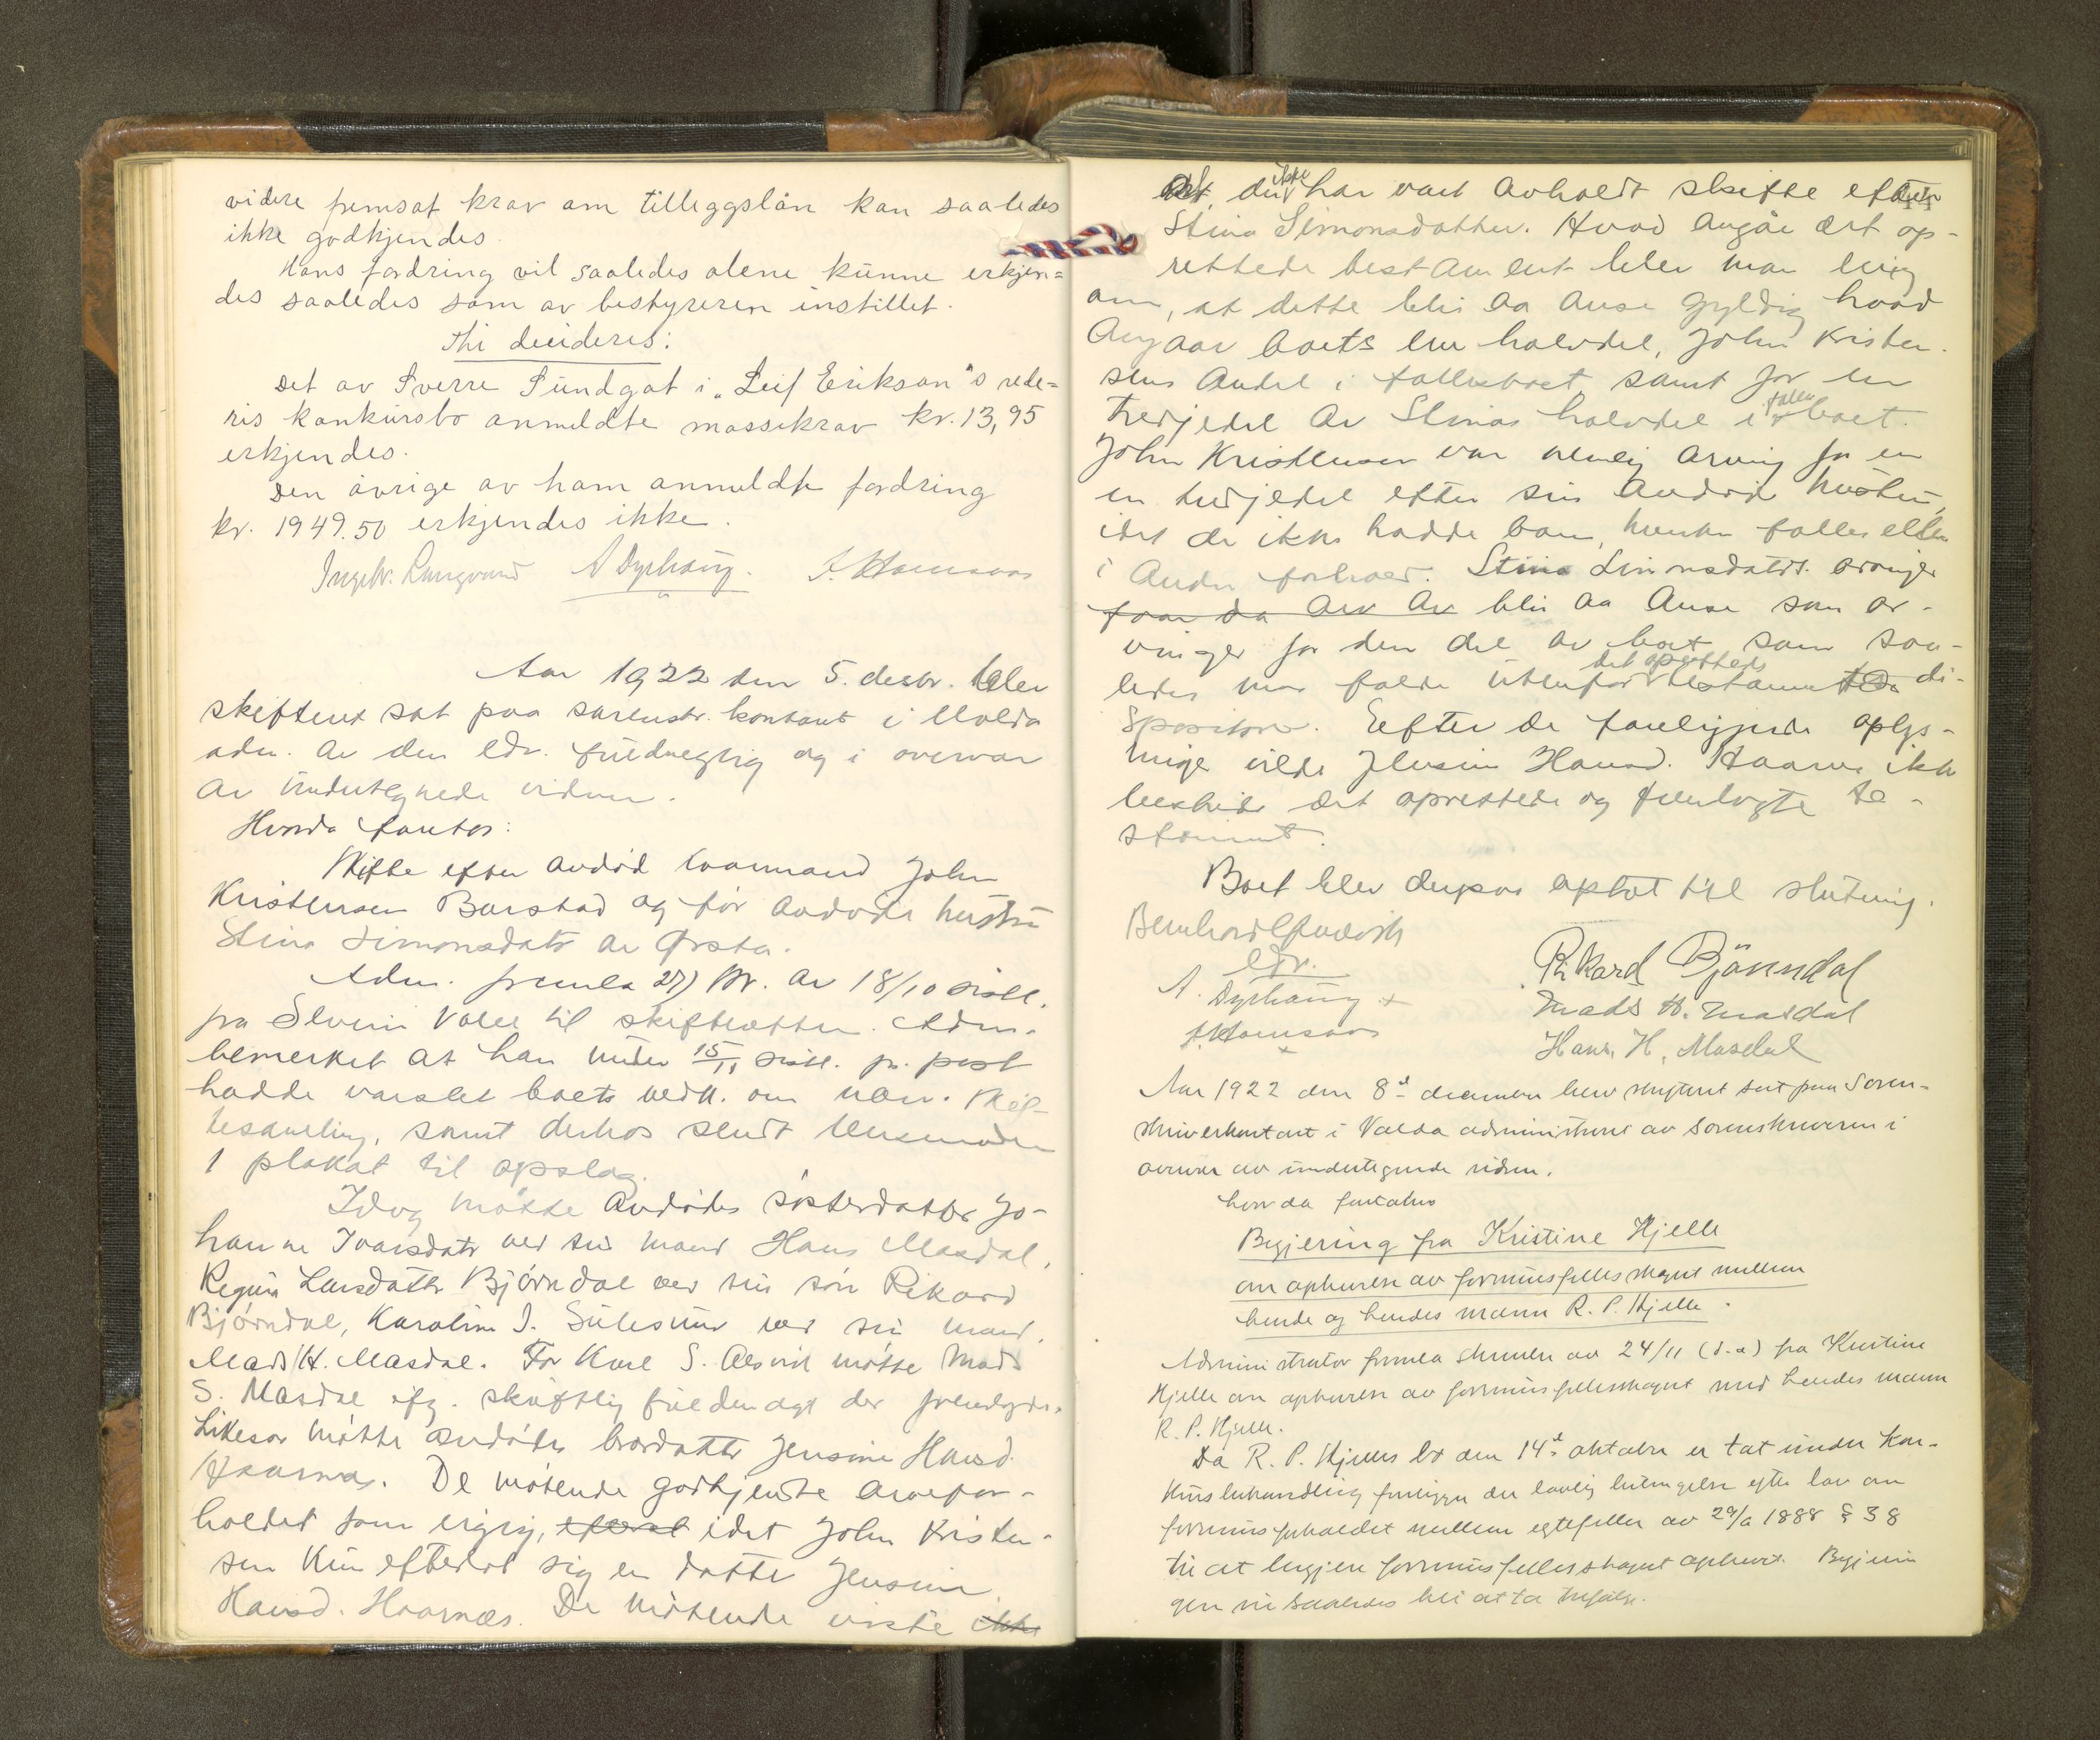 videre fremsat krav om tilleggslån kan saaledes
ikke godkjendes.
Hans fordring vil saaledes alene kunne erkjen=
des saaledes som av bestyreren instillet.
Thi decideres:
Det av Sverre Sundgot i "Leif Erikson"s rede=
ris konkursbo anmeldte massekrav kr. 13,95
erkjendes.
Den øvrige av ham anmeldte fordring
kr. 1949.50 erkjendes ikke.
Ingebr. Langvand A Dyrhaug. A. Hamsaas
Aar 1922 den 5. desbr. blev
skifteret sat paa sorenskr. kontoret i Volda
adm. av den edv. fuldmegtig og i overvær
av undertegnede vidner.
Hvorda foretos:
Skifte efter avdød kaarmand John
Kristensen Barstad og før avdøde hustru
Stina Simonsdatr av Ørsta.
Adm. fremla 27) br. av 18/10 sistl.
fra Severin Velle til skifteretten. Adm.
bemerket at han under 15/11 sistl. pr. post
hadde varslet boets vedk. om nærv. skif-
tesamling, samt derhos sendt lensmanden
1 plakat til opslag.
Idag møtte avdødes søsterdatter Jo-
hanne Ivarsdatr ved sin mand Hans Masdal,
Regina Larsdatter Bjørndal ved sin søn Rikard
Bjørndal, Karolina I. ved sin mand
Mads H. Masdal. For Karl S. møtte Mads
S. Masdal efg. skriftlig fuldmagt der fremlagdes.
Likesaa møtte avdødes brordatter Jensine Hansd.
Haarnes. De møtende godkjendte arvefor-
holdet som riktig, efterat idet John Kristen-
sen kun efterlot sig en datter Jensine
Hansd. Haarnæs. De møtende visste ikke
at der ikke har vært avholdt skifte efter
Stina Simonsdatter. Hvad angår det op-
rettede testament blev man enig
om, at dette blir aa anse gyldig hvad
angaar boets ene halvdel, John Kristen-
sens andel i fællesboet samt for en
tredjedel av Stinas halvdel i fælles boet.
John Kristensen var nemlig arving for en
en tredjedel efter sin avdøde hustru,
idet de ikke hadde barn, hverken fælles eller
i andre forhold. Stina Simonsdatrs. arvinger
faar da arv av blir aa anse som ar-
vinger for den del av boet som saa-
ledes maa falde utenfor det oprettede testamentes di-
sposition. Efter de foreliggende oplys-
ninger vilde Jensine Hansd. Haarnes ikke
beskride det oprettede og fremlagte te-
stament.
Boet blev derpaa optat til slutning.
edv.
A. Dyrhaug
A. Hamsaas
Rikard Bjørndal
Mads H. Masdal
Hans H. Masdal
Aar 1922 den 8de december blev skifteret sat paa Soren-
skriverkontoret i Volda administreret av sorenskriveren i
overvær av undertegnede vidner.
hvor da foretokes
Begjering fra Kristine Hjelle
om ophevelse av formuesfellesskapet mellem
hende og hendes mann R. P. Hjelle.
Administrator fremla skrivelse av 24/11 (d.a) fra Kristine
Hjelle om ophevelse av formuesfellesskapet med hendes mann
R. P. Hjelle.
Da R. P. Hjelles bo den 14de oktober er tat under kon-
kursbehandling foreligger der lovlig betingelse efter lov om
formuesforholdet mellem egtefeller av 29/6 1888 § 38
til at begjere formuesfellesskapet ophevet. Begjerin
gen vil saaledes bli at ta tilfølge.